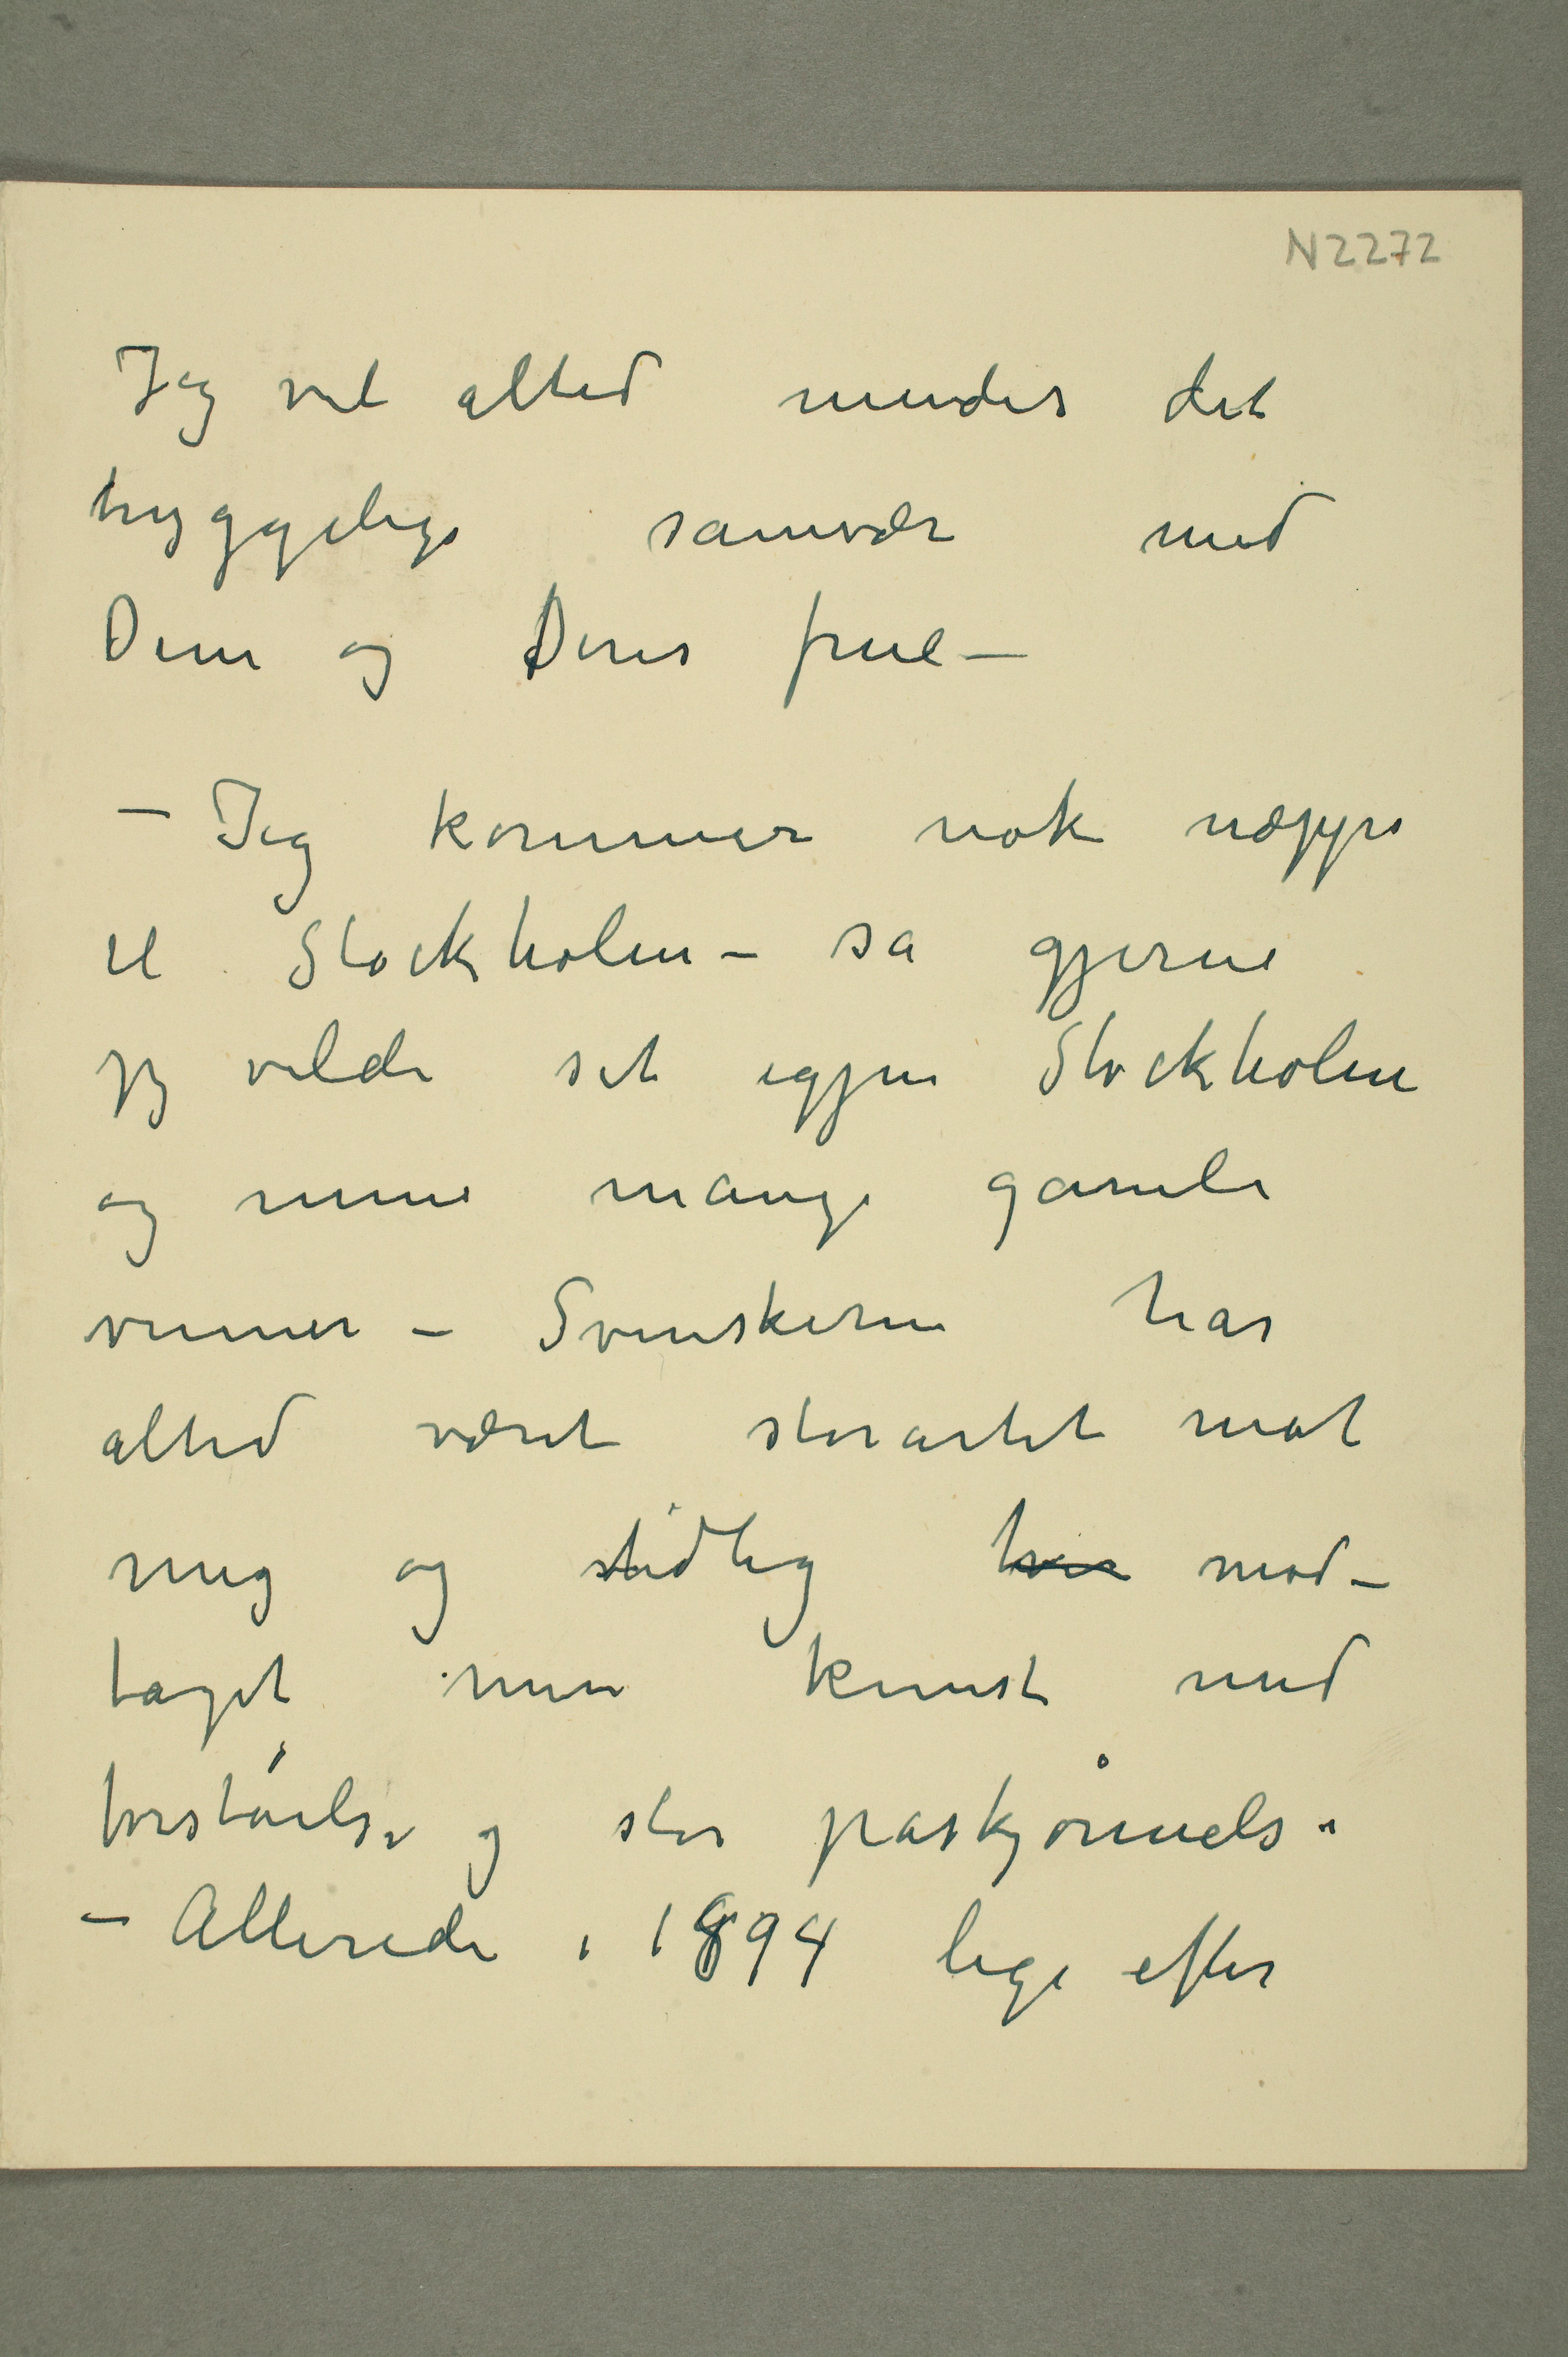 N 2272
Jeg vil altid mindes det
hyggelige samvær med
Dem og Deres frue –
– Jeg kommer nok næppe
til Stockholm – så gjerne
jeg vilde set igjen Stockholm
og mine mange gamle
venner – Svenskerne har
altid været storartet mot
mig og tidlig hver mod-
taget min kunst med
forståelse og stor påskjønnelse
– Allerede i 1894 lige efter